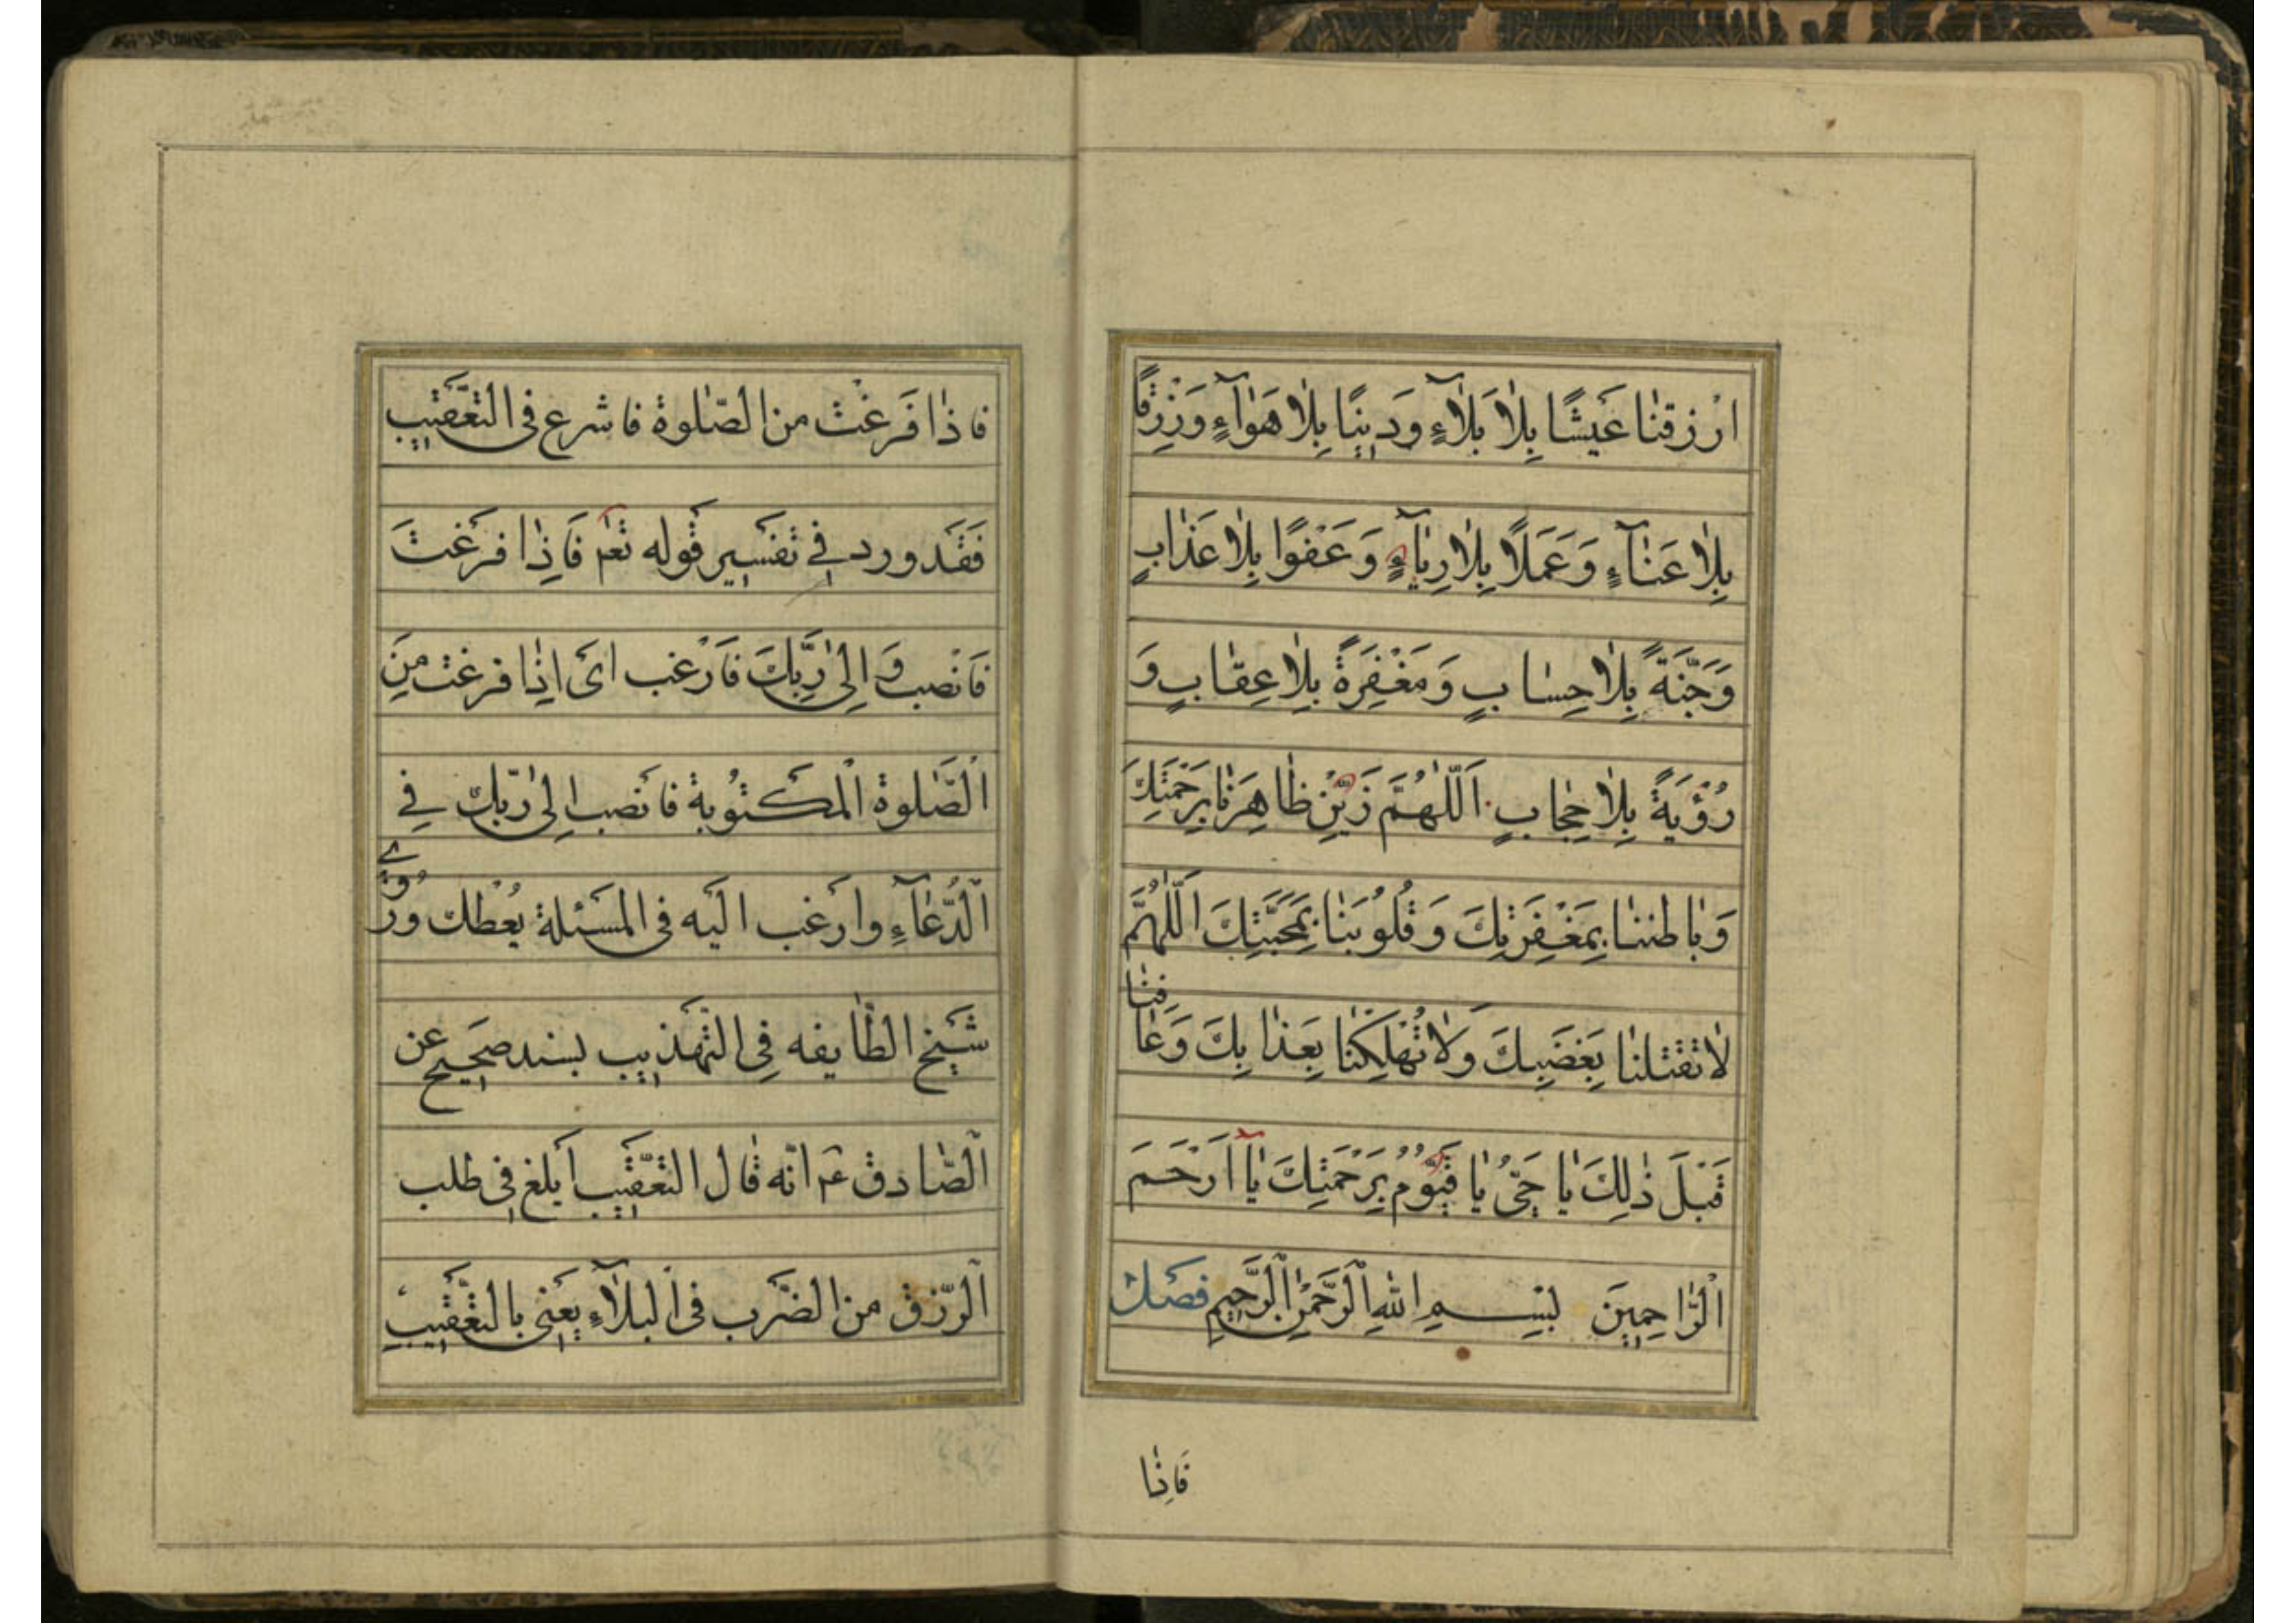 ارْزقنٰا عَيْشًا بِلٰا بَلٰآءٍ وَدِينًا بِلٰا هَوٰآءٍ وَرِزْقًا
بِلٰا عَنٰآءٍ وَعَمَلًا بِلٰا رِيٰآءٍ وَعَفْوًا بِلٰا عَذٰابٍ
وَجَنَّةً بِلٰا حِسٰابٍ وَمَغْفِرَةً بِلٰا عِقٰابٍ وَ
رُؤْيَةً بِلٰا حِجٰابٍ اَللّٰهُمَّ زَيِّنْ ظٰاهِرَنٰا بِرَحْمَتِكَ
وَبٰاطننٰا بِمَغْفِرَتِكَ وَقُلُوُبَنٰا بِمَحَبَّتِكَ اَللّٰهُمَّ
لٰا تَقْتلنٰا بِغَضَبِكَ وَلٰا تُهْلِكْنٰا بِعَذٰابِكَ وَعٰافِنٰا
قَبْلَ ذٰلِكَ يٰا حَىُّ يٰا قَيُّوُمُ بِرَحْمَتِكَ يٰآ اَرْحَمَ
اَلْرّٰاحِمِينَ بِسْمِ اللهِ اَلْرَّحْمٰنِ اَلْرَّحِيمِ فصَلْ
فَاِذٰا
فاذٰا فَرَغْتْ من الصّلٰوة فاشرع فى التعَّقيب
فَقَد ورد فِي تفسَير قَوله تعٰم فَاِذٰا فرَغتَ
فَانْصب وَاِلىٰ رَبِّكَ فَارْغب اىَ اذٰا فرغت منَ
اَلْصَّلٰوة اْلمَكتُوبة فانَصب اِلىٰ رّبّكَ فِي
اَلْدُّعٰآءِ وارَغب اليَه فى المَسَئلة يُعْطك ورُوَي
شَيخ الطّٰايفه فِى التّهَذيب بسند صَحيح عن
اَلْصّٰادق عم انّه قٰال التعَّقيب اَبلغ فى طلب
اَلْرّزق من الضَرب فى البلٰآءِ يعَنى بالتعَّقيب